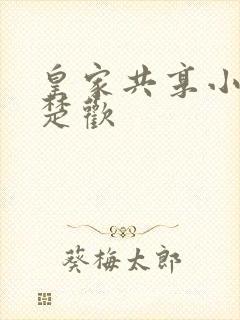 皇家共享小
楚歡
葵梅太郎